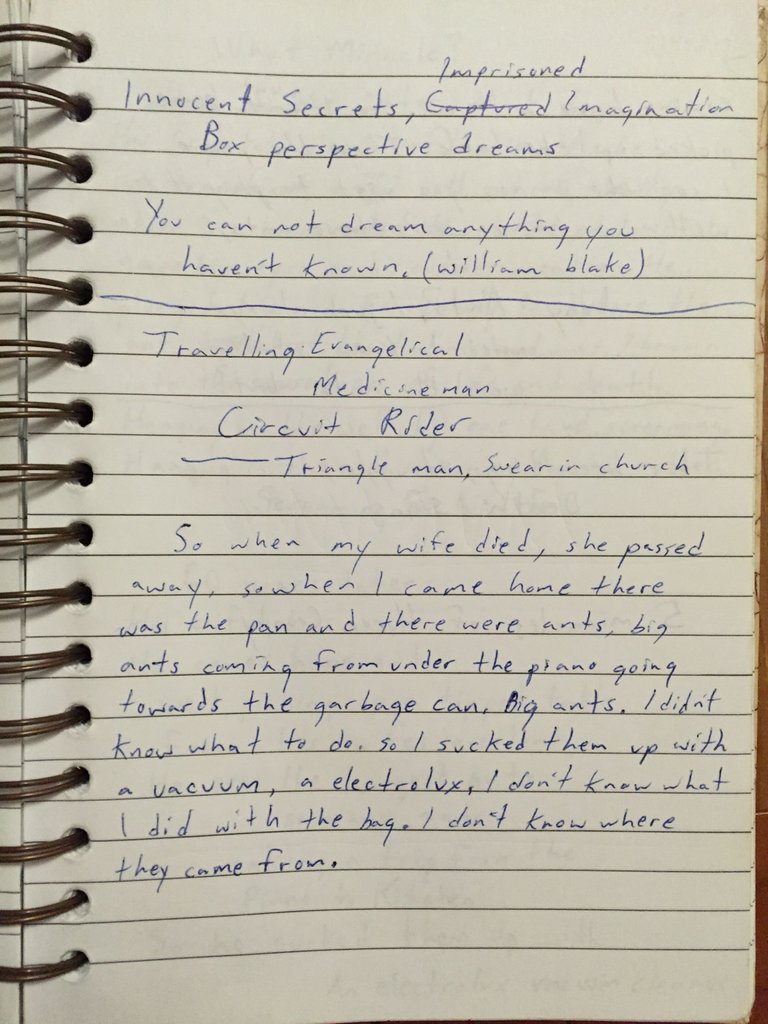 Imprisoned
Innocent Secrets, Captured Imagination
Box perspective dreams
You can not dream anything you
haven't known. (william blake)
Travelling Evangelical
Medicine man
Circuit Rider
Triangle man, Swear in church
So when my wife died, she passed
away, so when I came home there
was the pan and there were ants, big
ants coming from under the piano going
towards the garbage can. Big ants. I didn't
know what to do. so I sucked them up with
a vacuum, a electrolux, I don't know what
I did with the bag. I don't know where
they came from.